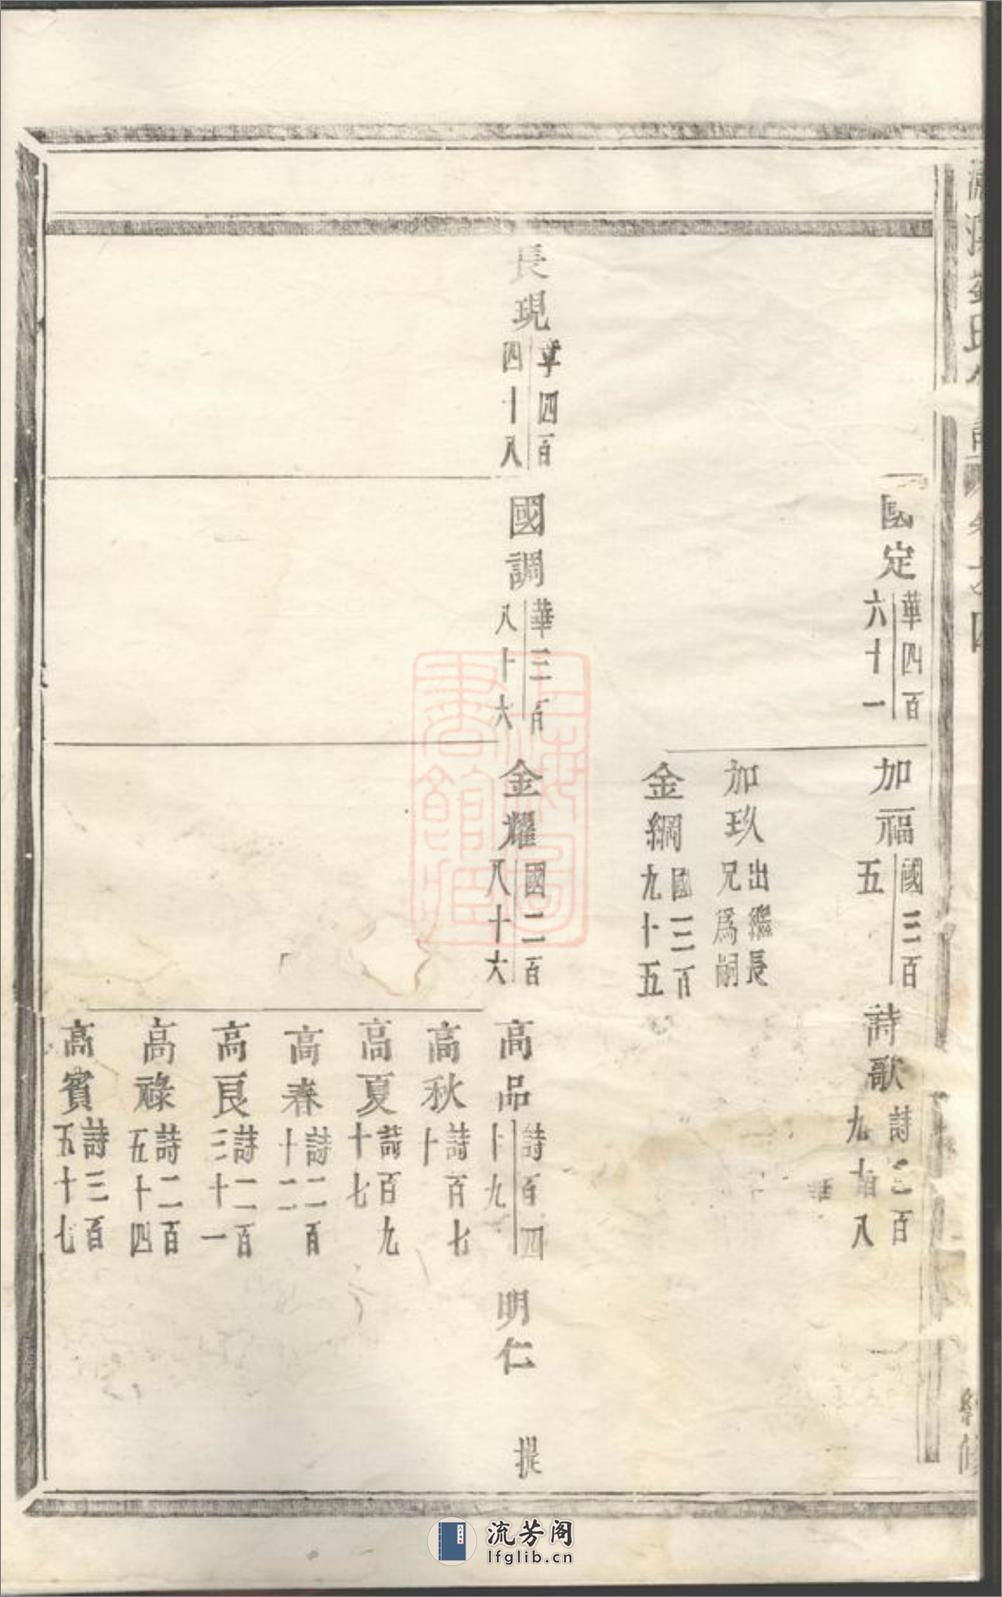 國定 華四百六十一
加福 國三百五
詩歌 詩二百九十八
加玖 出繼長兄爲嗣
金綱 國三百九十五
長現 享四百四十八
國調 華三百八十六
金耀 國二百八十六
高品 詩百四十九
明仁
提
高秋 詩百七十
高夏 詩百九十七
高春 詩二百十二
高良 詩二百三十一
高祿 詩二百五十四
高賓 詩三百五十七
上海圖書館藏
流芳阁
lfglib.cn